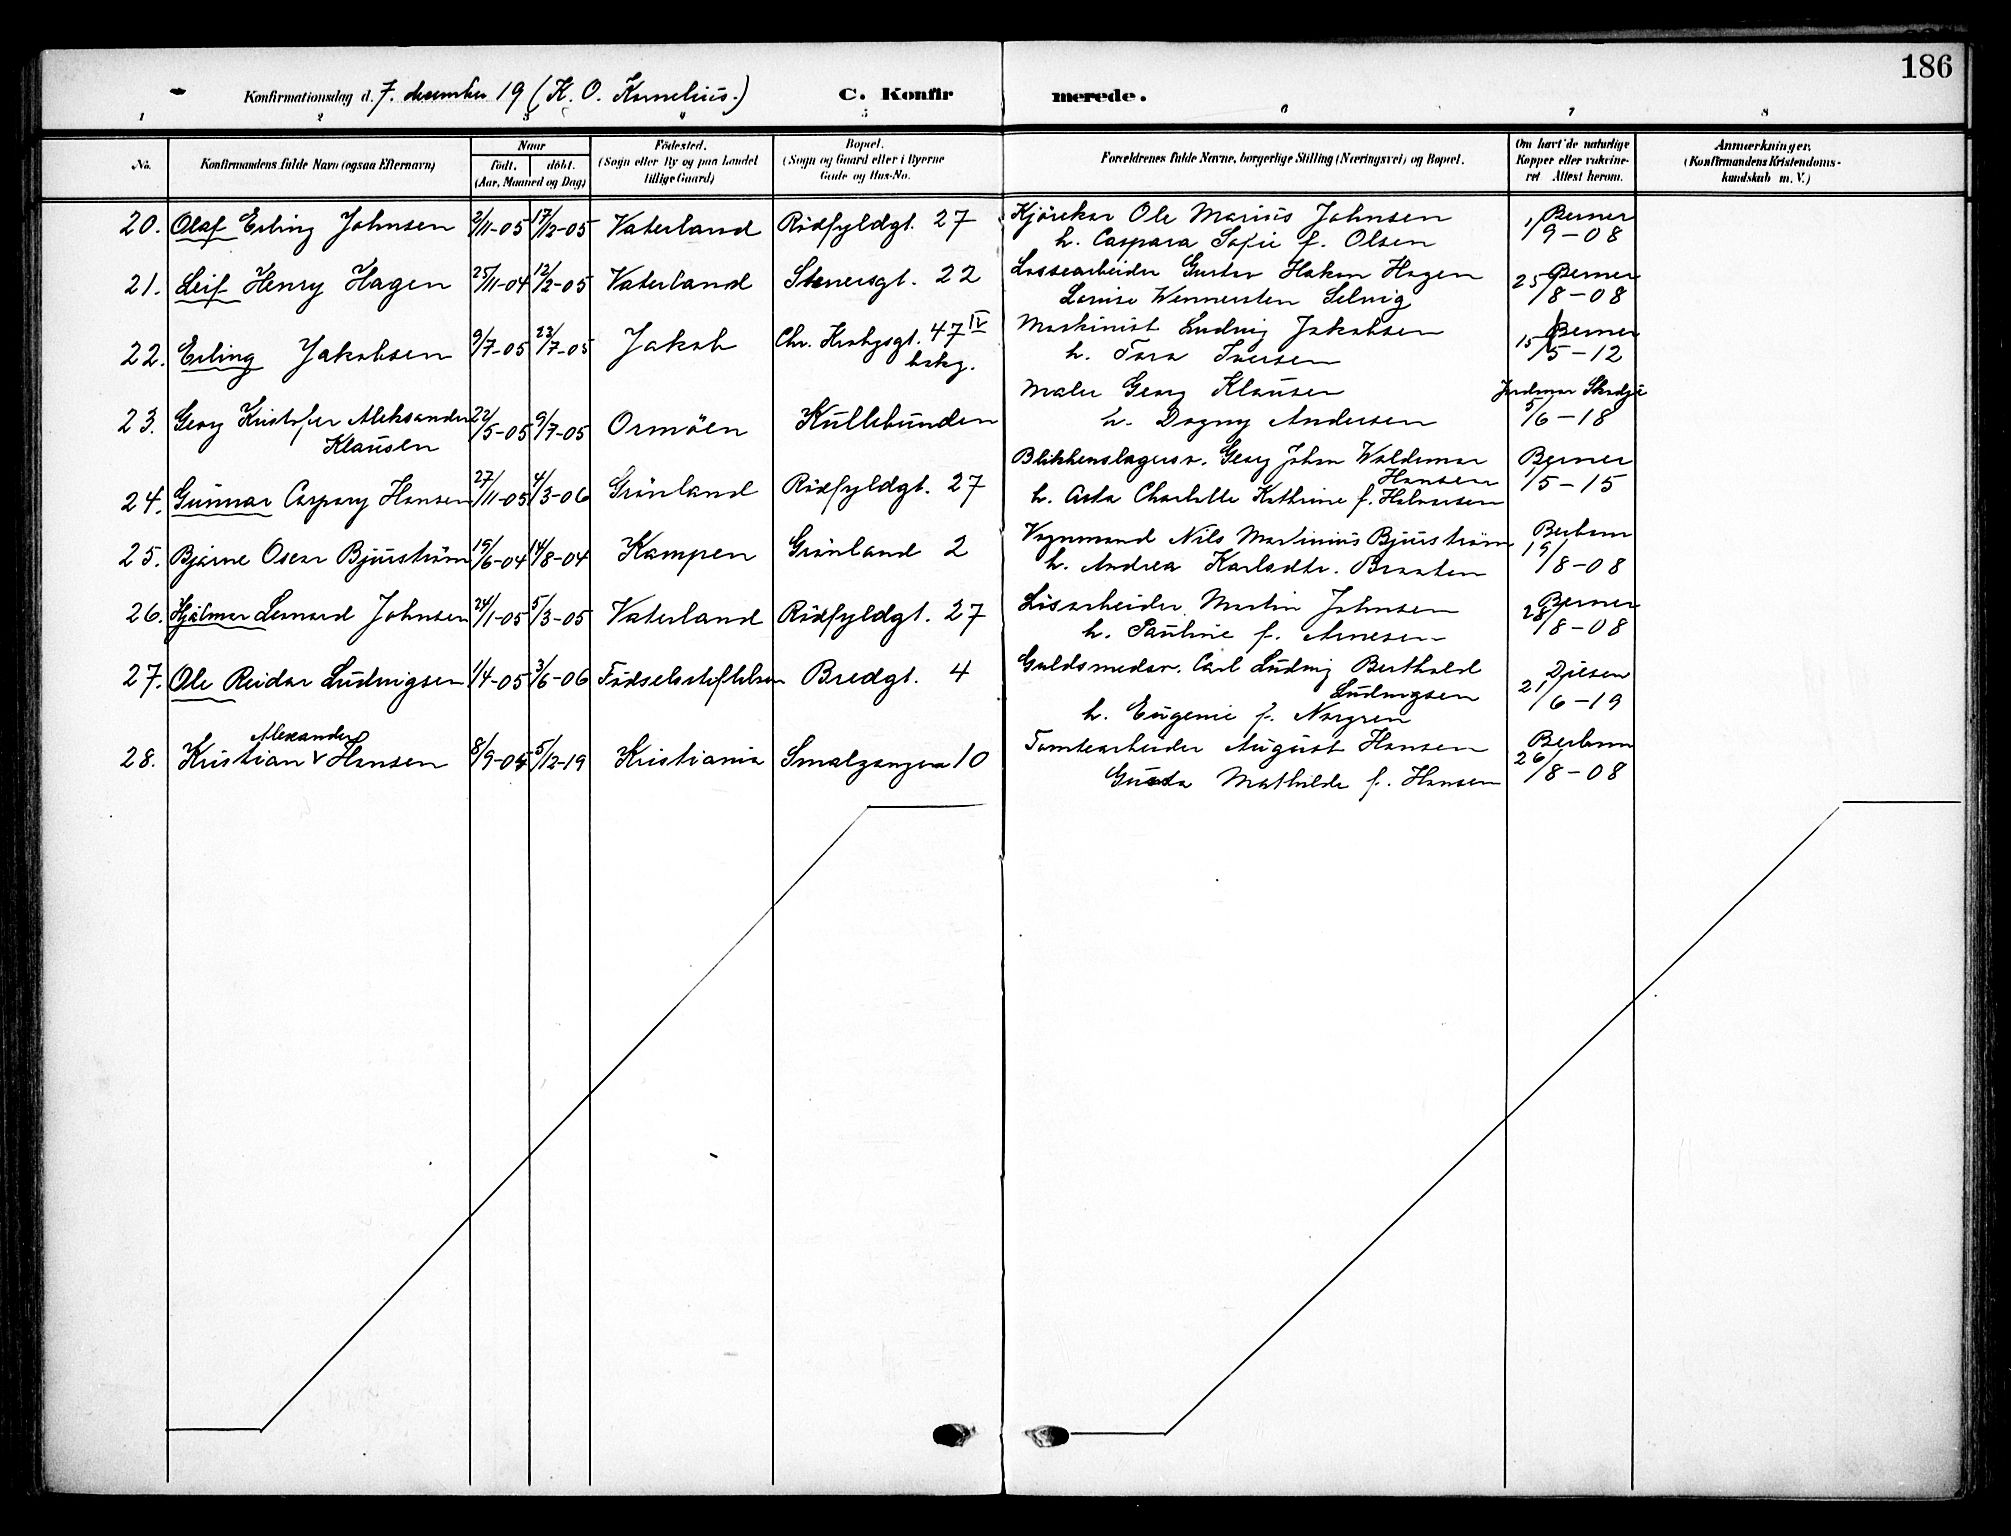 186
Konfirmationsdag d. 7. desember 19 (K. O. Kornelius.) C. Konfirmerede.
1 2 3 4 5 6 7 8
No. Konfirmandens fulde Navn (ogsaa Efternavn) Naar født. døbt. (Aar, Maaned og Dag) Fødested. (Sogn eller By og paa Landet tillige Gaard) Bopæl. (Sogn og Gaard eller i Byerne Gade og Hus-No. Forældrenes fulde Navne, borgerlige Stilling (Næringsvei) og Bopæl. Om havt de naturlige Kopper eller vakcineret Attest herom. Anmærkninger. (Konfirmandens Kristendomskundskab m. V.)
20. Olaf Erling Johnsen 2/11-05 17/12-05 Vaterland Rödfyldgt. 27 Kjörekar Ole Marius Johnsen Berner
h. Caspara Sofie f. Olsen 1/9-08
21. Leif Henry Hagen 25/11-04 12/2-05 Vaterland Stenersgt. 22 Lossearbeider Gustav Hakon Hagen Berner
Lovise Wennersten Selvig 25/8-08
22. Erling Jakobsen 9/7-05 23/7-05 Jakob Chr. Krohgsgt. 47 IV Maskinist Ludvig Jakobsen Berner
bakg. h. Tora Iversen 15/5-12
23. Georg Kristofer Aleksander 22/5-05 9/7-05 Ormöen Kullebunden Maler Georg Klausen
Klausen h. Dagny Andersen 5/6-18
24. Gunnar Caspary Hansen 27/11-05 4/3-06 Grönland Rödfyldgt. 27 Blikkenslagersv. Georg Johan Waldemar Berner
Hansen 1/5-15
h. Asta Charlotte Kathrine f. Halvorsen
25. Bjarne Oscar Bjuström 19/6-04 14/8-04 Kampen Grönland 2 Vognmand Nils Martinius Bjuström
h. Andrea Karlsdtr. Braaten 19/8-08
26. Hjalmar Leonard Johnsen 24/1-05 5/3-05 Vaterland Rödfyldgt. 27 Lösarbeider Martin Johnsen Berner
h. Pauline f. Arnesen 28/8-08
27. Ole Reidar Ludvigsen 1/4-05 3/6-06 Födselsstiftelsen Bredgt. 4 Guldsmedsv. Carl Ludvig Berthold
Ludvigsen 21/6-19
h. Eugenie f. Norgren
Alexander
28. Kristian Hansen 8/9-04 5/12-19 Kristiania Smalgangen 10 Tomtearbeider August Hansen
Gusta Mathilde f. Hansen 26/8-08